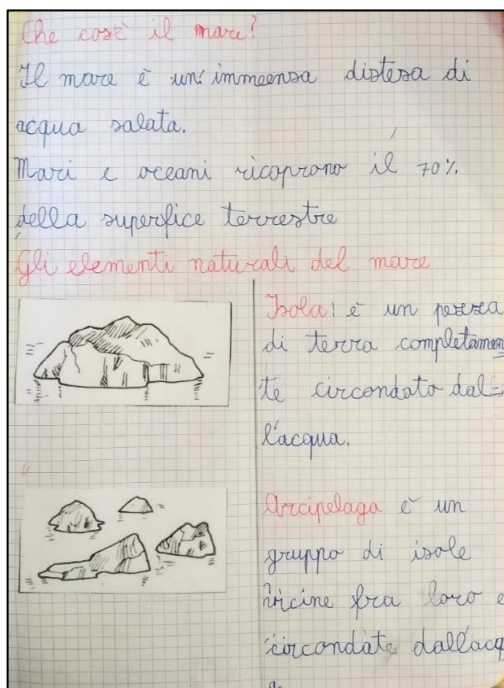 Che cos'è il mare?
Il mare è un'immeensa distesa di
acqua salata.
Mari e oceani ricoprono il 70%
della superfice terrestre
Gli elementi naturali del mare
Isola: è un pezzea
di terra completamen
te circondato dal-
l'acqua.
Arcipelaga è un
gruppo di isole
vicine fra loro e
circondate dall'acq